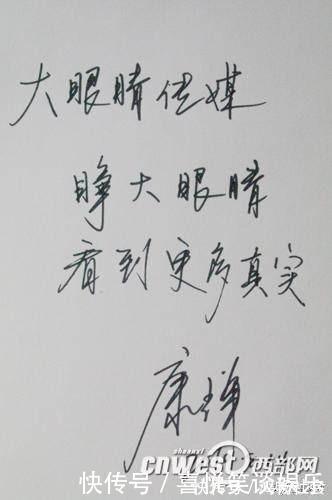 大眼睛传媒
睁大眼睛
看到更多真实
康辉
cnwest 西部网
快传号/喜悦笑谈娱乐